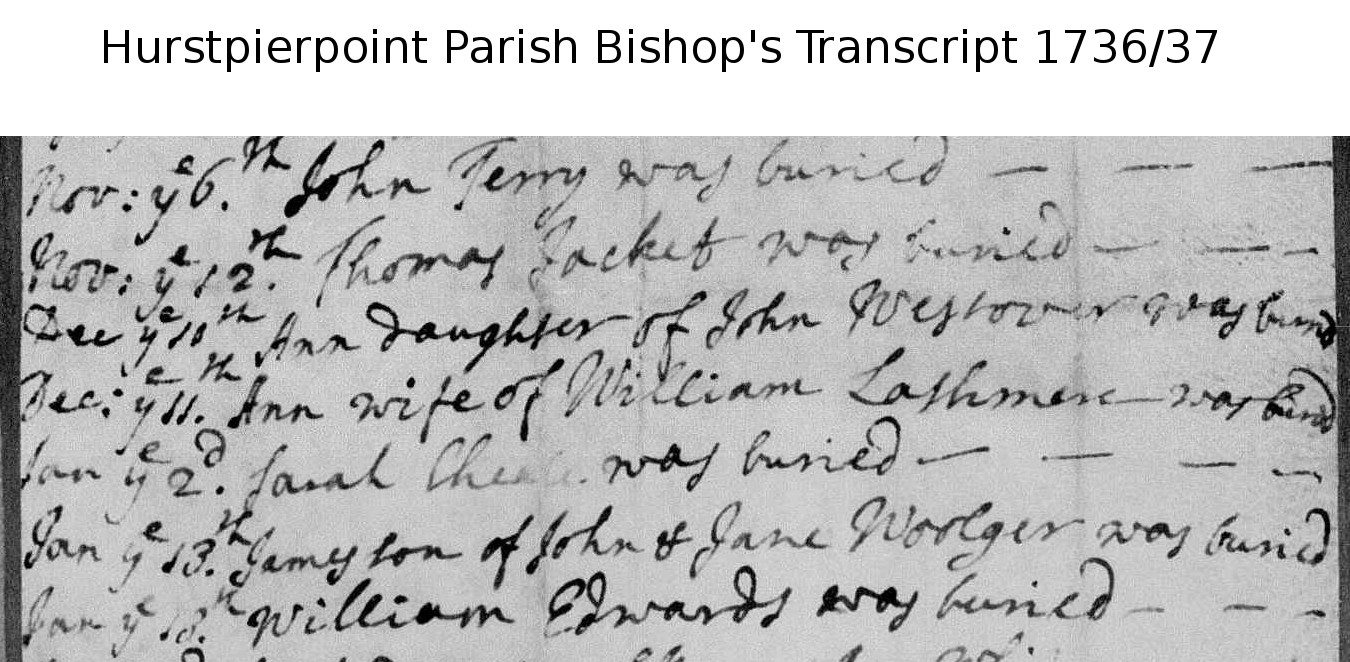 Hurstpierpoint Parish Bishop's Transcript 1736/37
Nov: yͤ 6.th John Terry was buried — — —
Nov: yͤ 12.th Thomas Jacket was buried — — –
Dec yͤ 10th Ann daughter of John Westover was buried
Dec: yͤ 11.th Ann wife of William Lashmere was buried
Jan yͤ 2.d Sarah was buried — — — —
Jan yͤ 13.th James son of John & Jane Woolger was buried
Jan yͤ 18.th William Edwards was buried – – –